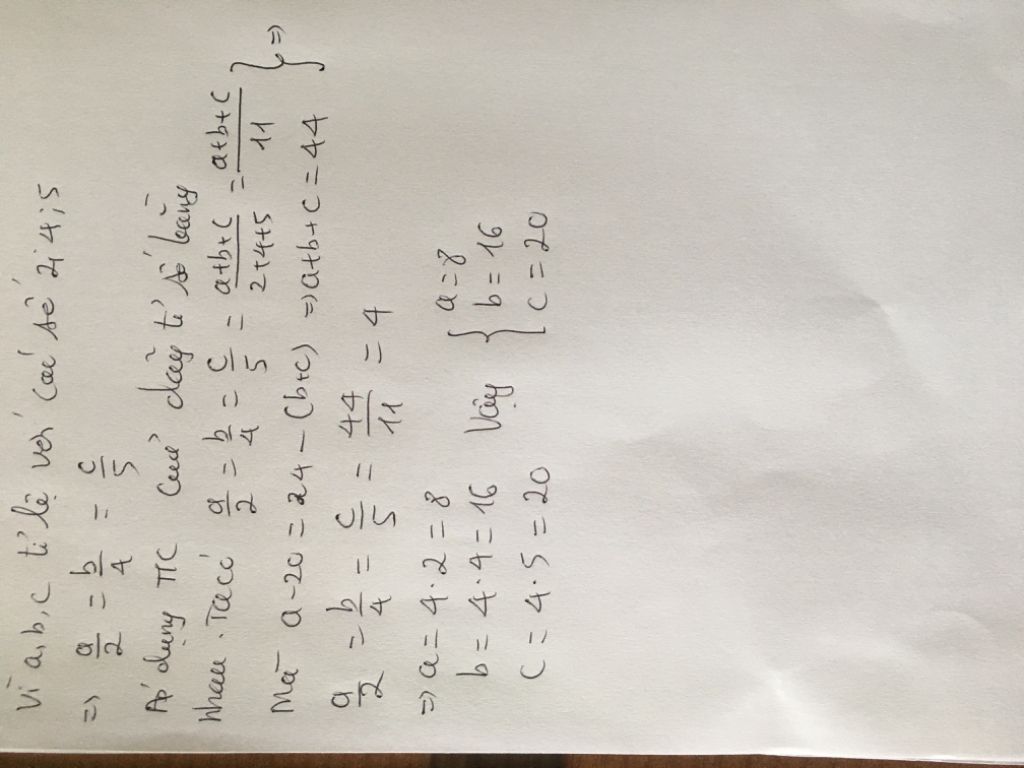 Vì a, b, c tỉ lệ với các số 2; 4; 5
=> a/2 = b/4 = c/5
Áp dụng TC của dãy tỉ số bằng
nhau. Ta có a/2 = b/4 = c/5 = a+b+c/2+4+5 = a+b+c/11 } =>
Mà a-20 = 24 - (b+c) => a+b+c = 44
a/2 = b/4 = c/5 = 44/11 = 4
=> a = 4.2 = 8
b = 4.4 = 16
c = 4.5 = 20
Vậy { a = 8
b = 16
c = 20